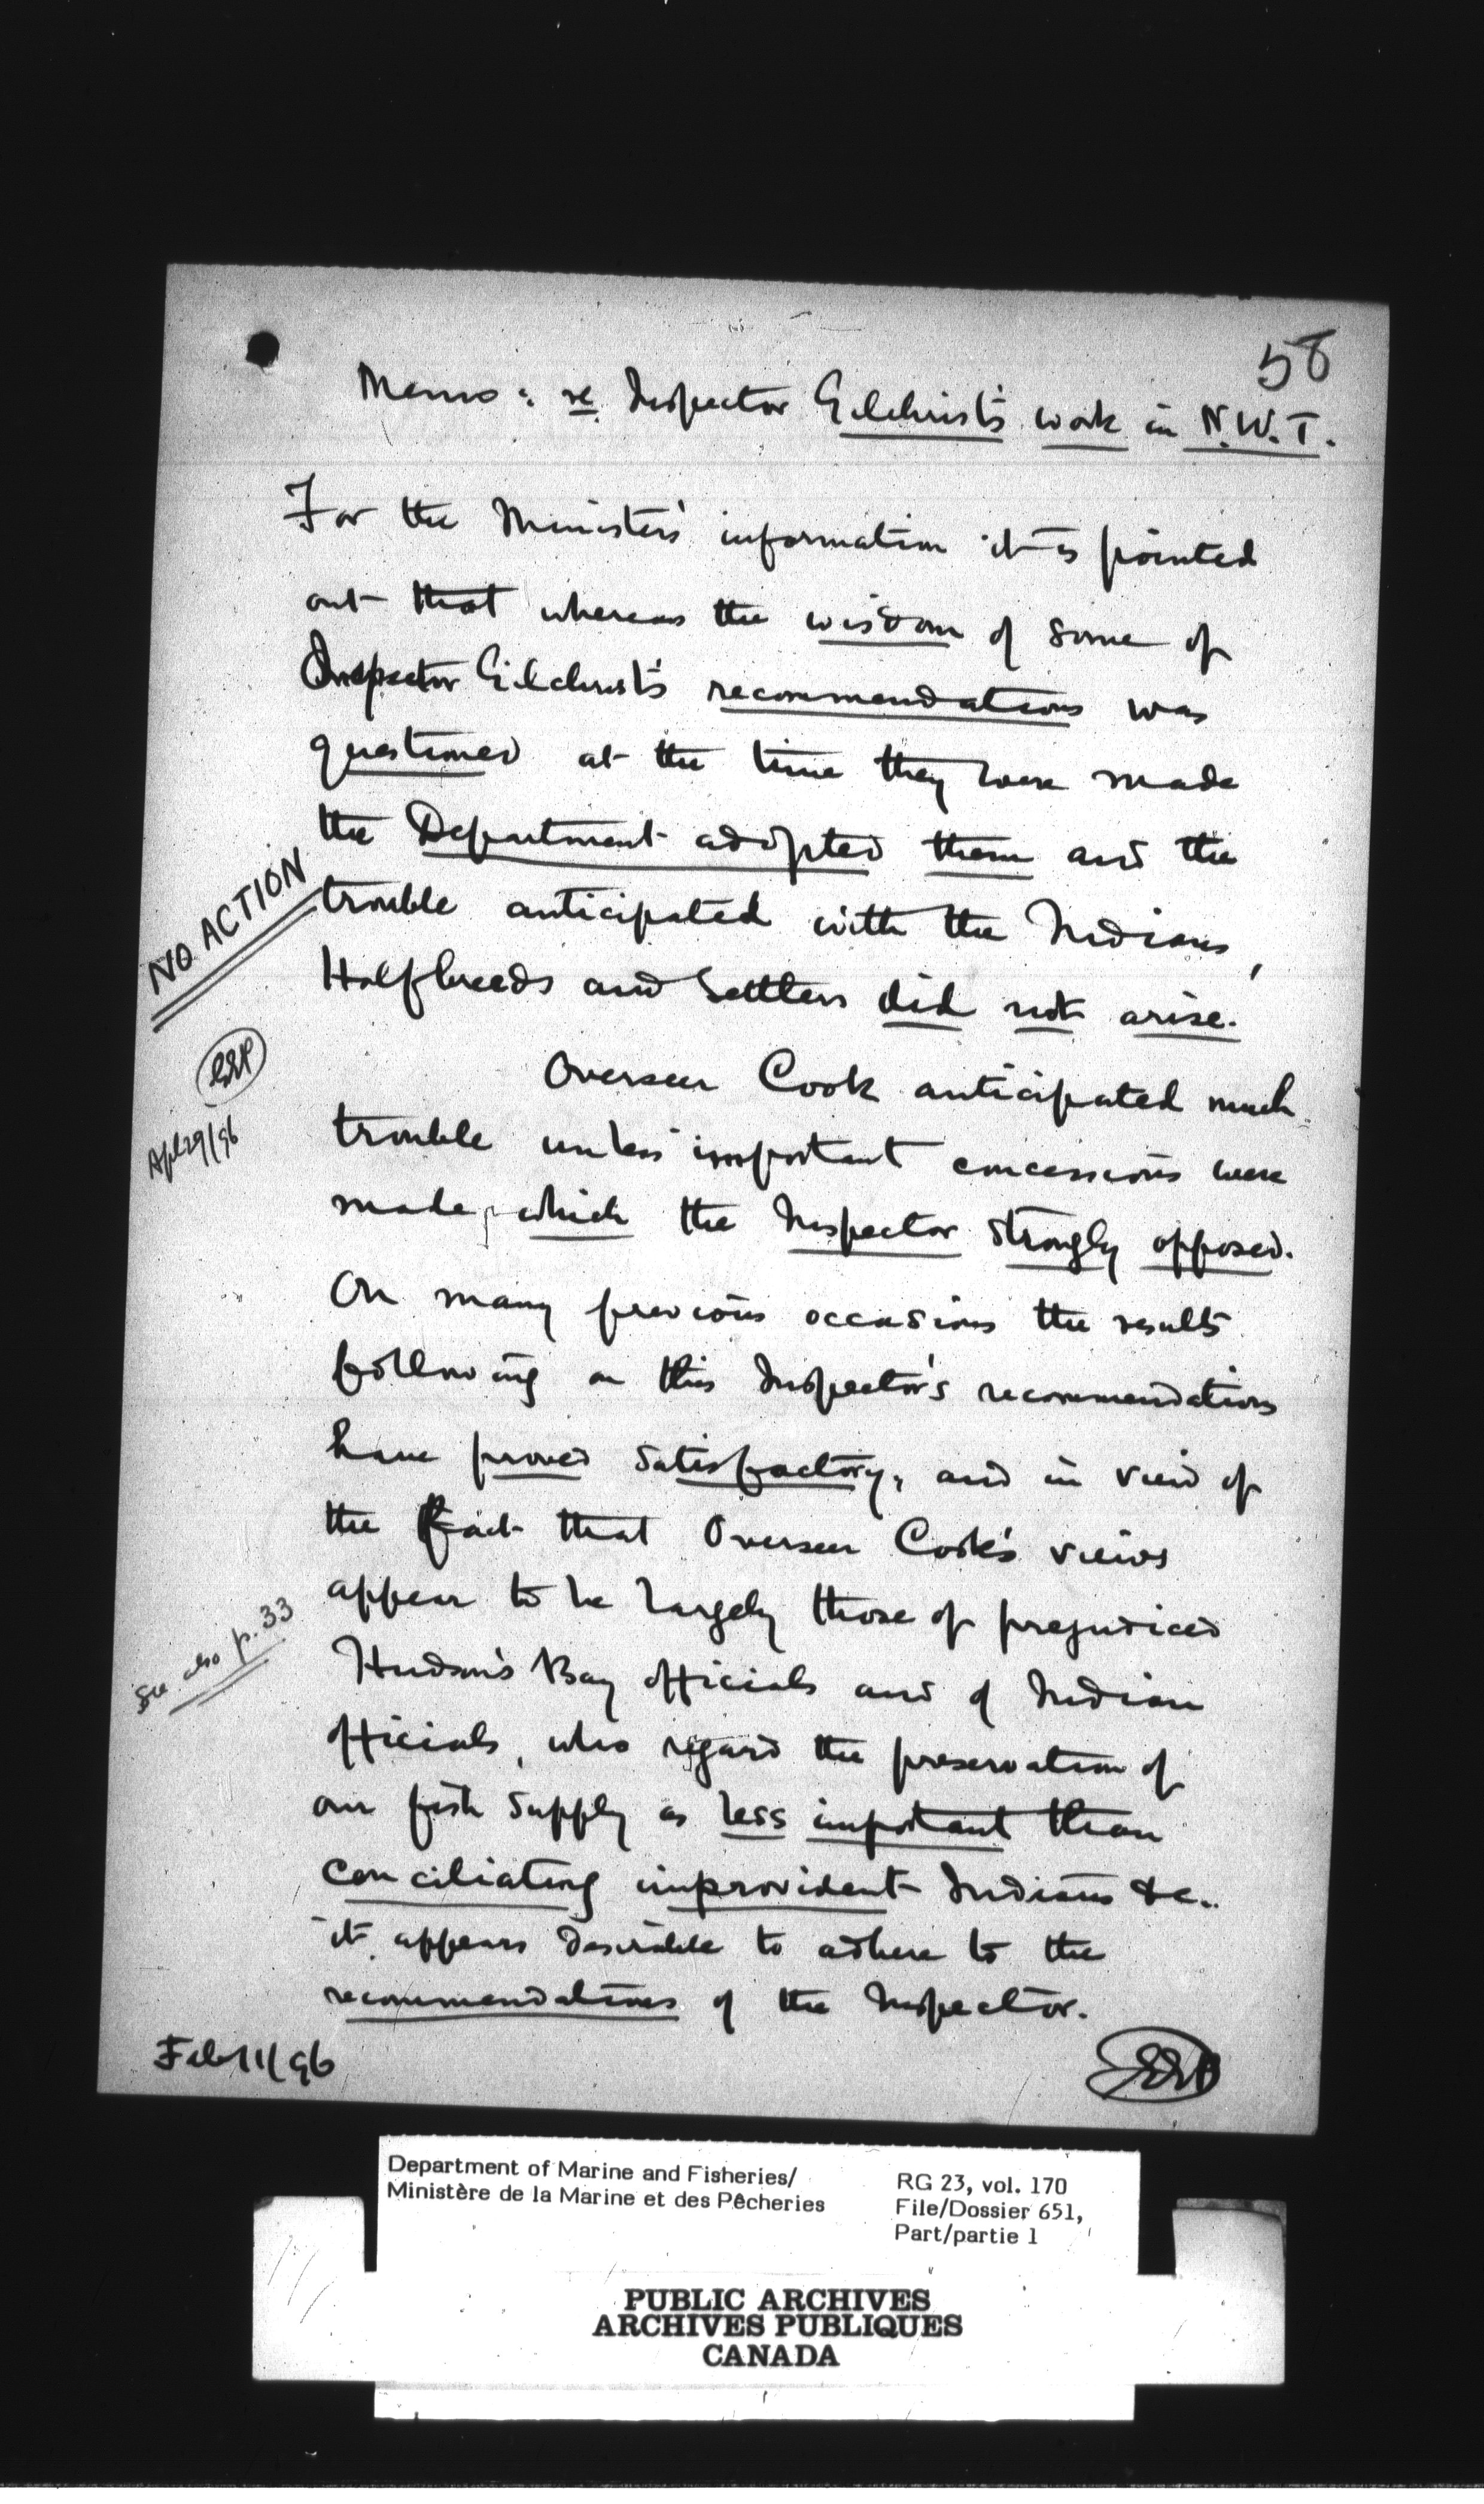 58
Memo: re Inspector Gilchrist's work in N.W.T.
For the Minister's information it is pointed
out that whereas the wisdom of some of
Inspector Gilchrist's recommendations was
questioned at the time they were made
the Department adopted them and the
trouble anticipated with the Indians,
Halfbreeds and Settlers did not arise.
NO ACTION
Apl 29/96
Overseer Cook anticipated much
trouble unless important concessions were
made, which the Inspector strongly opposed.
On many previous occasions the results
following on this Inspector's recommendations
have proved satisfactory, and in view of
the fact that Overseer Cook's views
appear to be largely those of prejudiced
See also p. 33
Hudson's Bay officials and of Indian
officials, who regard the preservation of
our fish supply as less important than
conciliating improvident Indians &c..
it appears desirable to adhere to the
recommendations of the Inspector.
Feb 11/96
Department of Marine and Fisheries/
Ministère de la Marine et des Pêcheries
RG 23, vol. 170
File/Dossier 651,
Part/partie 1
PUBLIC ARCHIVES
ARCHIVES PUBLIQUES
CANADA